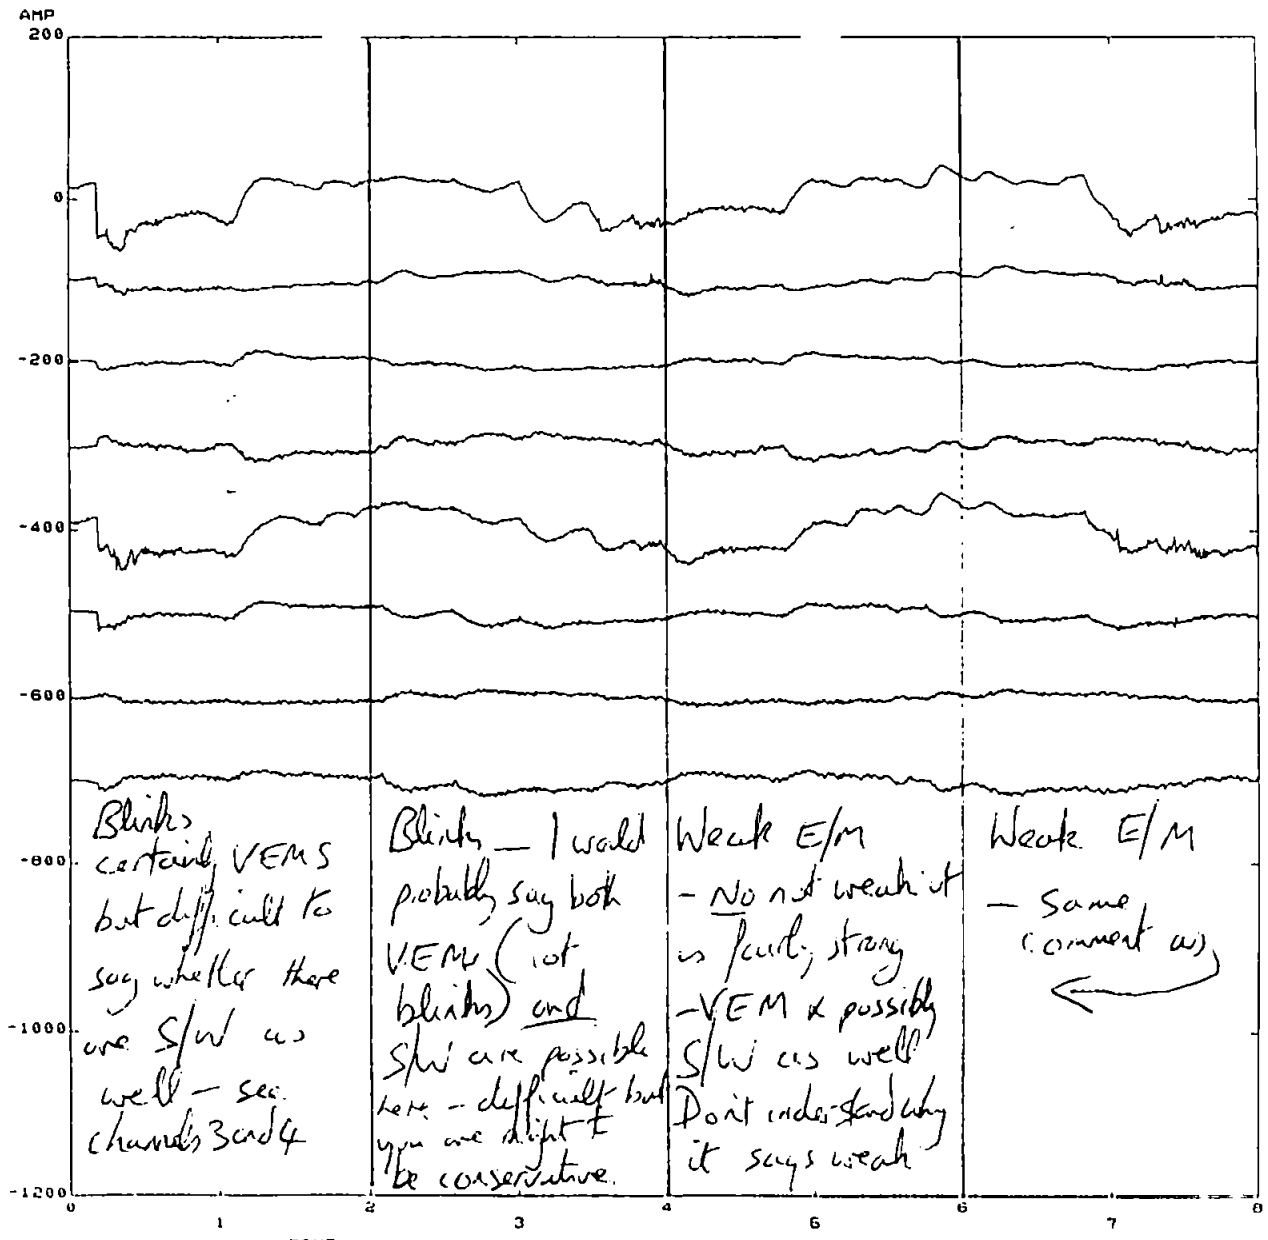 AMP
200
0
-200
-400
-600
-800
-1000
-1200
0 1 2 3 4 5 6 7 8
Blinks
certainly VEMS
but difficult to
say whether there
are S/W as
well - see
channels 3 and 4
Blinks - I would
probably say both
VEMs (not
blinks) and
S/W are possible
here - difficult but
you are right to
be conservative.
Weak E/M
- No not weak it
is fairly strong
- VEM & possibly
S/W as well
Don't understand why
it says weak
Weak E/M
- Same
comment as